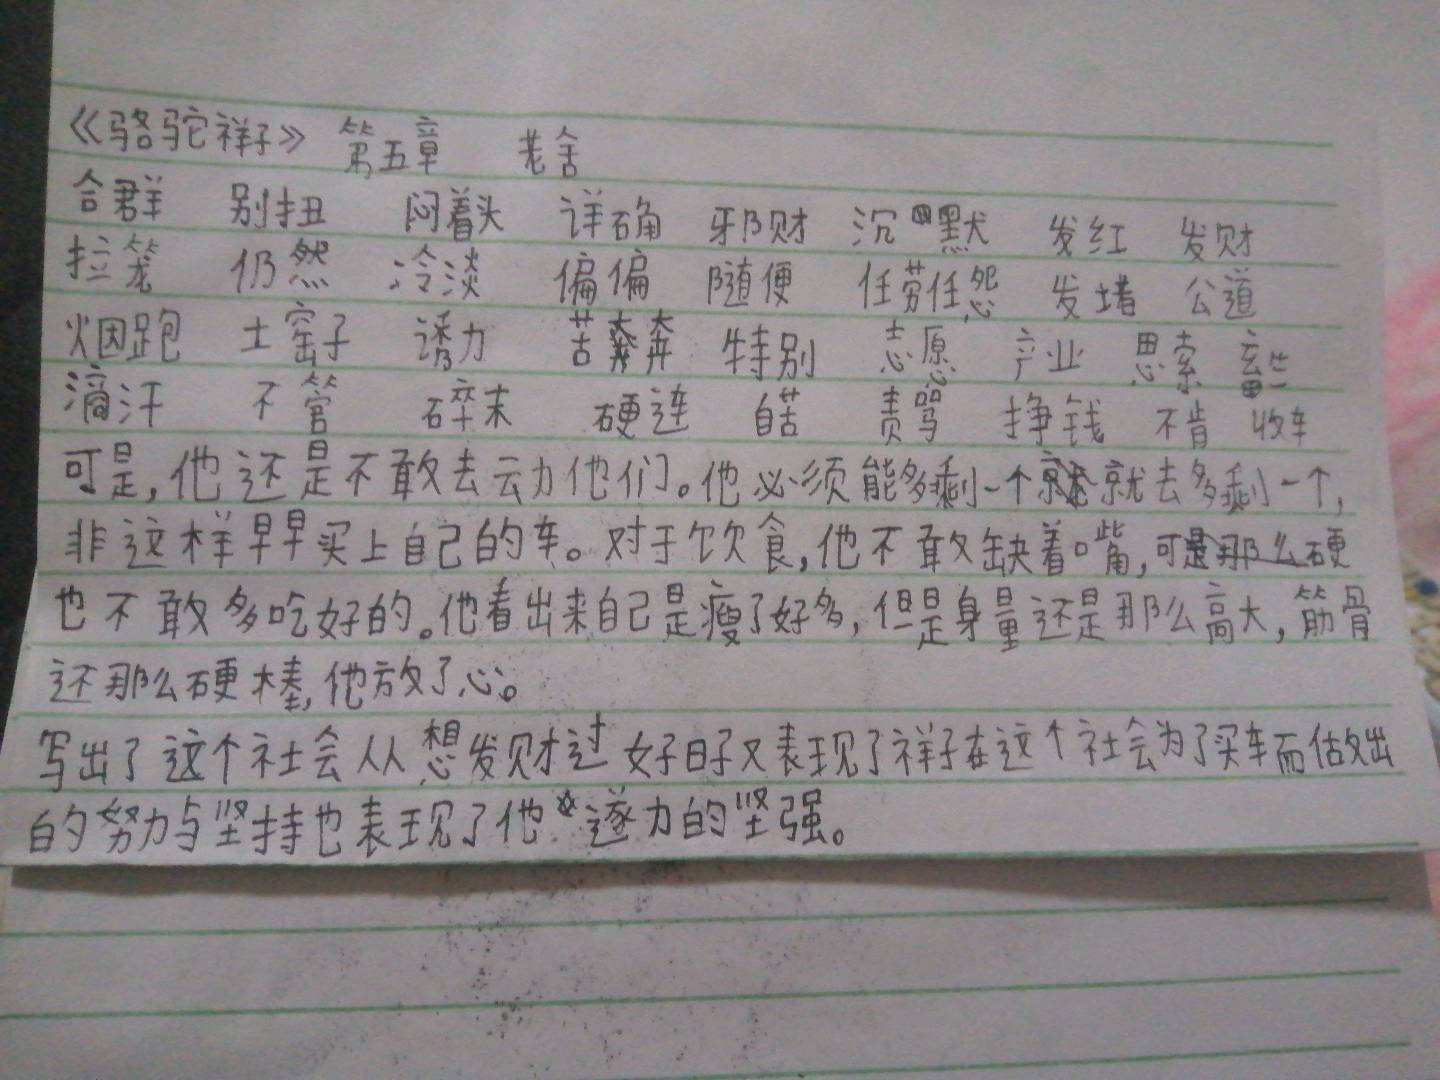 《骆驼祥子》 第五章 老舍
合群 别扭 闷着头 详确 邪财 沉默 发红 发财
拉笼 仍然 冷淡 偏偏 随便 任劳任怨 发堵 公道
烟跑 土窑子 诱力 苦奔 特别 志愿 产业 思索
滴汗 不管 碎末 硬连 自苦 责骂 挣钱 不肯 收车
可是,他还是不敢去动他们。他必须能多剩一个就去多剩一个,
非这样早早买上自己的车。对于饮食,他不敢缺着嘴,可
也不敢多吃好的。他看出来自己是瘦了好多,但是身量还是那么高大,筋骨
还那么硬棒,他放了心。
写出了这个社会人人想发财过好日子又表现了祥子在这个社会为了买车而做出
的努力与坚持也表现了他 遂力的坚强。